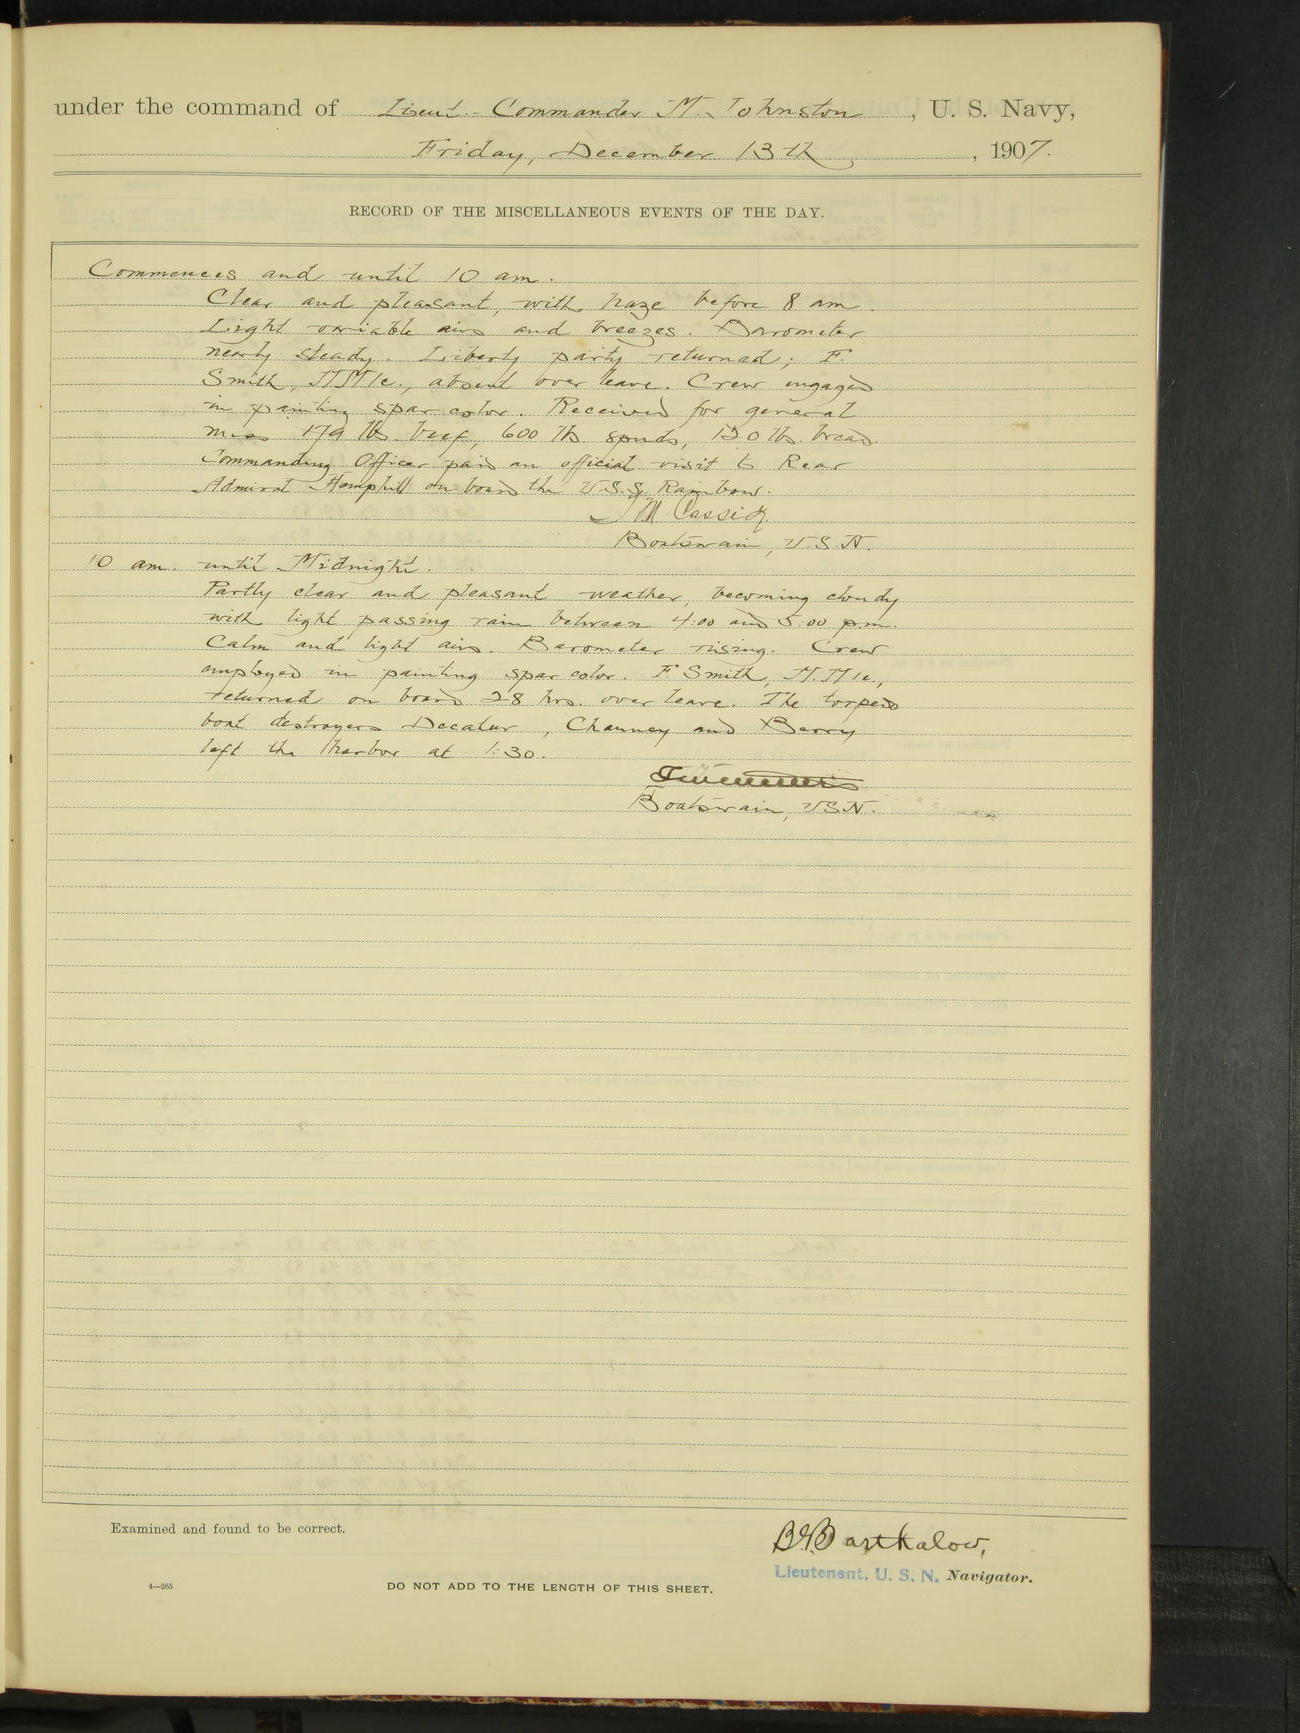 under the command of Lieut.-Commander M. Johnston, U. S. Navy,
Friday, December 13th, , 1907.
RECORD OF THE MISCELLANEOUS EVENTS OF THE DAY.
Commences and until 10 am.
Clear and pleasant, with haze before 8 am.
Light variable airs and breezes. Barometer
nearly steady. Liberty party returned; F.
Smith, M.M.1c., absent over leave. Crew engaged
in painting spar color. Received for general
mess 179 lbs. beef, 600 lbs. spuds, 120 lbs. bread.
Commanding Officer paid an official visit to Rear
Admiral Hemphill on board the U.S.S. Rainbow.
Cassidy
Boatswain, U.S.N.
10 am. until Midnight.
Partly clear and pleasant weather, becoming cloudy
with light passing rain between 4:00 and 5:00 p.m.
Calm and light airs. Barometer rising. Crew
employed in painting spar color. F. Smith, M.M.1c.,
returned on board 28 hrs. over leave. The torpedo
boat destroyers Decatur, Chauncy and Barry
left the harbor at 1:30.
Boatswain, USN.
Examined and found to be correct.
Barthalow,
Lieutenant, U. S. N. Navigator.
4—265
DO NOT ADD TO THE LENGTH OF THIS SHEET.